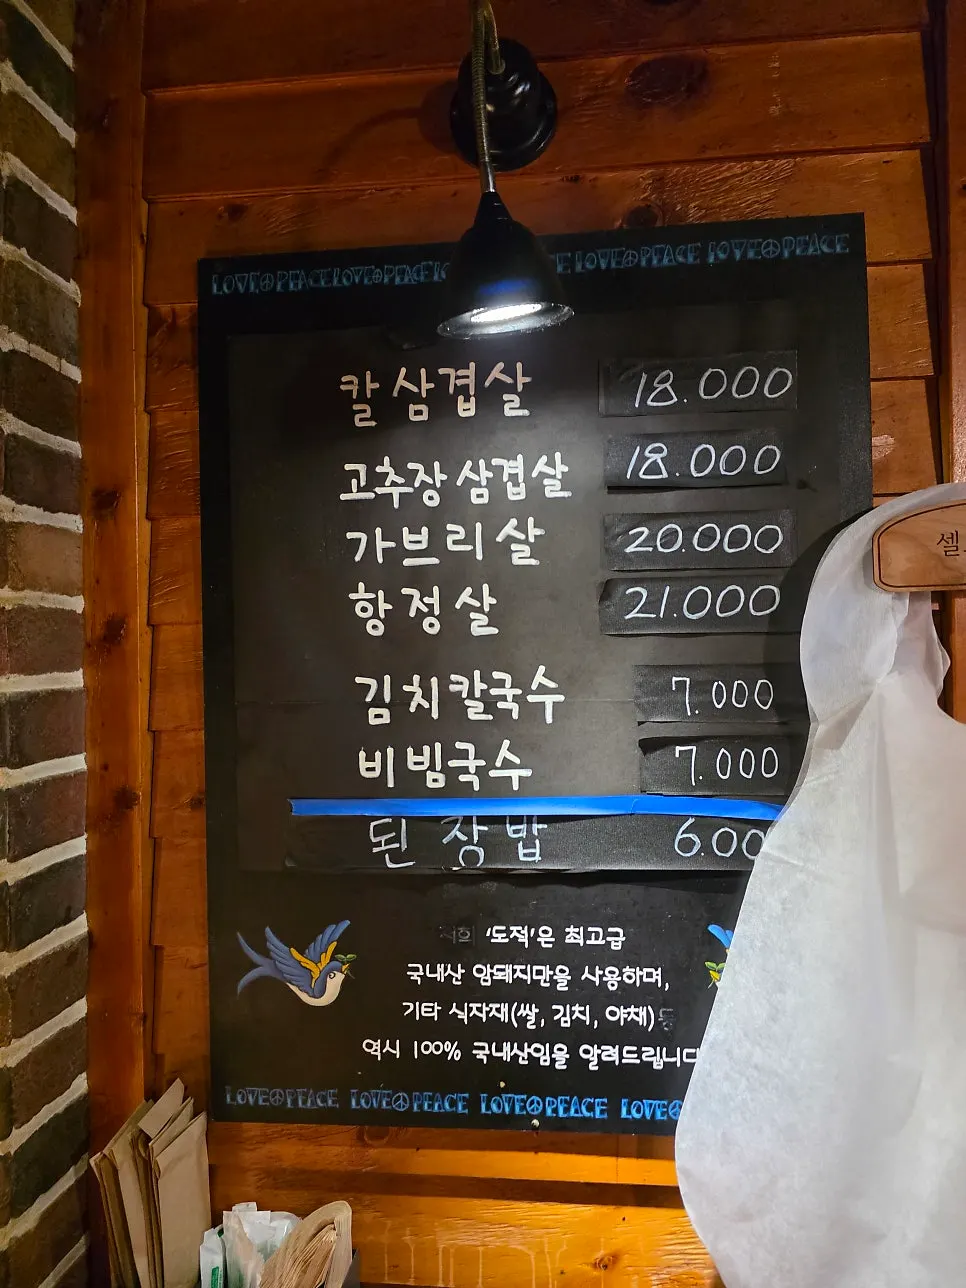 LOVE☮PEACE LOVE☮PEACE LO E LOVE☮PEACE LOVE☮PEACE
칼삼겹살 18.000
고추장삼겹살 18.000
가브리살 20.000
항정살 21.000
셀
김치칼국수 7.000
비빔국수 7.000
된장밥 6.00
저희 '도적'은 최고급
국내산 암돼지만을 사용하며,
기타 식자재(쌀, 김치, 야채)등
역시 100% 국내산임을 알려드립니다
LOVE☮PEACE LOVE☮PEACE LOVE☮PEACE LOVE☮